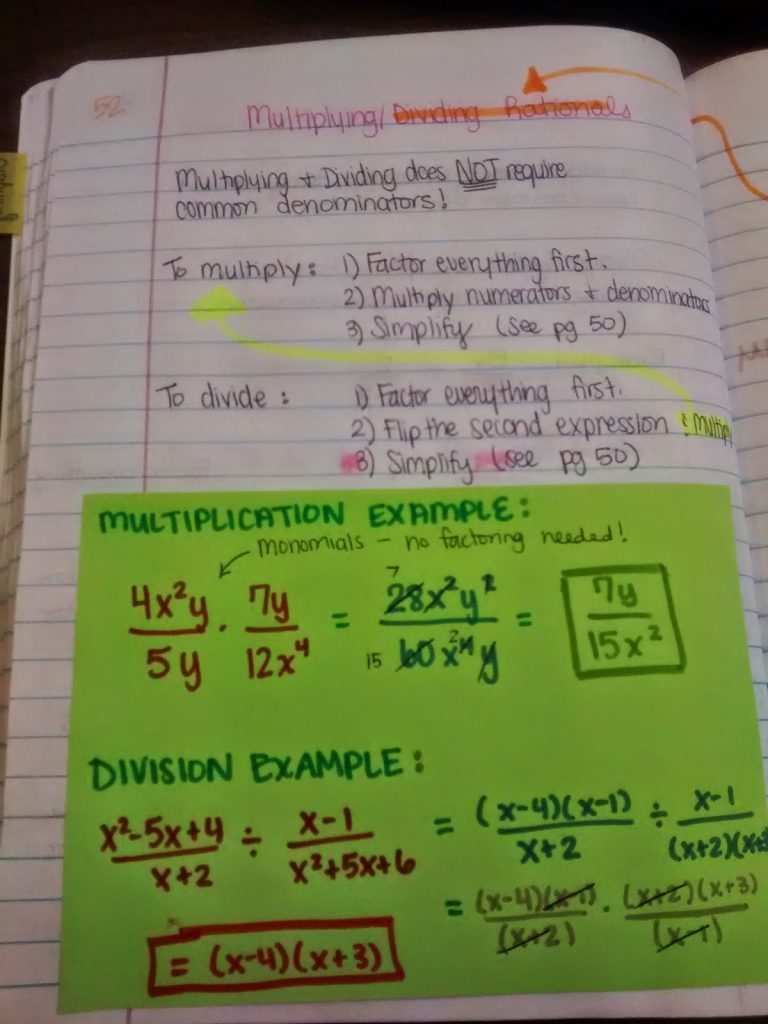 52
Multiplying/Dividing Rationals
Multiplying + Dividing does NOT require
common denominators!
To multiply: 1) Factor everything first.
2) Multiply numerators + denominators
3) Simplify (see pg 50)
To divide: 1) Factor everything first.
2) Flip the second expression & Multiply
3) Simplify (see pg 50)
MULTIPLICATION EXAMPLE:
monomials – no factoring needed!
4x²y/5y · 7y/12x⁴ = 7 28x²y²/15 60x⁴ 2 y = 7y/15x²
DIVISION EXAMPLE:
x²-5x+4/x+2 ÷ x-1/x²+5x+6 = (x-4)(x-1)/x+2 ÷ x-1/(x+2)(x+3
= (x-4)(x-1)/(x+2) · (x+2)(x+3)/(x-1)
= (x-4)(x+3)